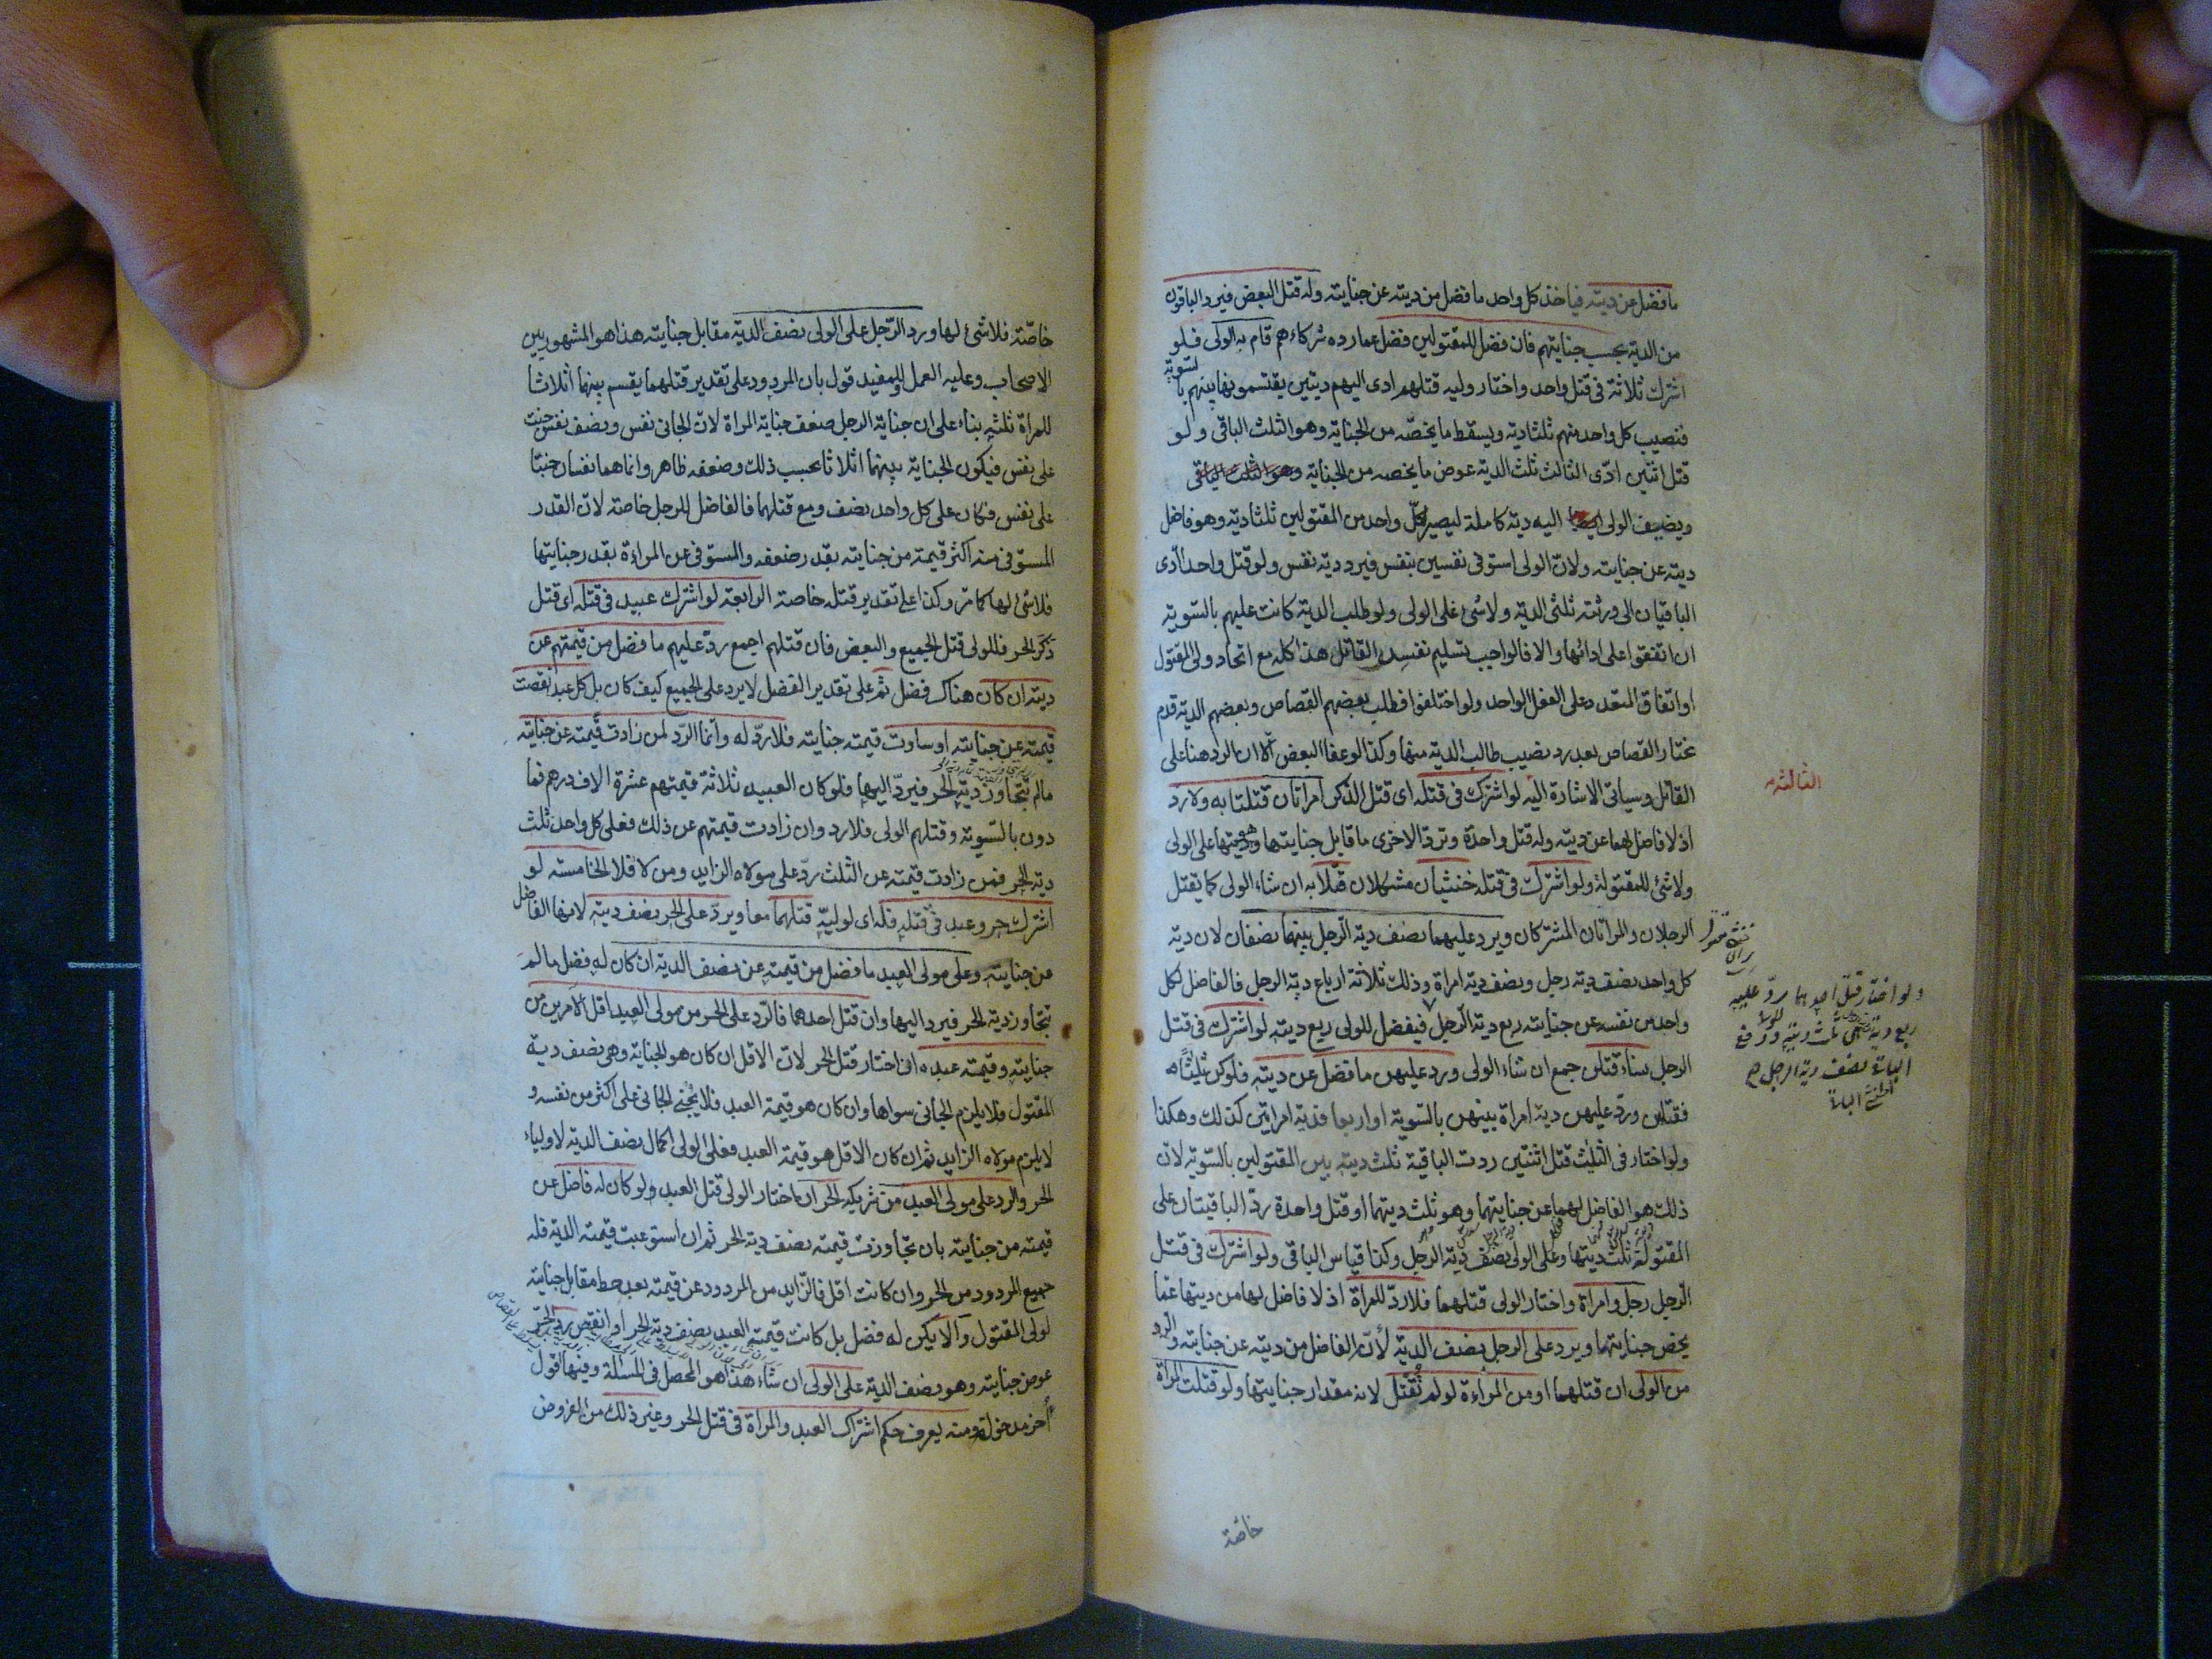 ما فضل عن ديته فياخذ كل واحد ما فضل من ديته عن جنايته وله قتل البعض فيرد الباقون
من الدية بحسب جنايتهم فان فضل للمقتولين فضل عما رده شركاءهم قام به الولى فلو
اشترك ثلاثة فى قتل واحد واختار وليه قتلهم ادى اليهم ديتين يقتسمونها بينهم بالسوية
فنصيب كل واحد منهم ثلثا دية ويسقط ما يخصه من الجناية وهو الثلث الباقى ولو
قتل اثنين ادّى الثالث ثلث الدية عوض ما يخصه من الجناية وهو الثلث الباقى
ويضيف الولى اليه دية كاملة ليصير لكلّ واحد من المقتولين ثلثا دية وهو فاضل
ديته عن جنايته ولانّ الولى استوفى نفسين بنفس فيرد دية نفس ولو قتل واحدا أدى
الباقيان الى ورثته ثلثى الدية ولا شئ على الولى ولو طلب الدية كانت عليهم بالسوية
ان اتفقوا على ادائها والا فالواجب تسليم نفس القاتل هذا كله مع اتحاد ولى المقتول
او اتفاق المتعدد على الفعل الواحد ولو اختلفوا فطلب بعضهم القصاص وبعضهم الدية قدم
مختار القصاص بعد رد نصيب طالب الدية منها وكذا لو عفا البعض الا ان الرد هنا على
القاتل وسياتى الاشارة اليه لو اشترك فى قتله اى قتل الذكر امراتان قتلتا به ولا رد
الثالثة
اذ لا فاضل لهما عن ديته وله قتل واحدة وترد الاخرى ما قابل جنايتها وهو ديتها على الولى
ولا شئ للمقتولة ولو اشترك فى قتله خنثيان مشكلان قتلا به ان شاء الولى كما يقتل
الرجلان والمراتان المشتركان ويرد عليهما نصف دية الرجل بينهما نصفان لان دية
كل واحد نصف دية رجل ونصف دية امراة وذلك ثلاثة ارباع دية الرجل فالفاضل لكل
واحد من نفسه عن جنايته ربع دية الرجل فيفضل للولى ربع ديته لو اشترك فى قتل
ولو اختار قتل احدهما ردّ عليه
ربع دية هى ثلث ديته ودفع
الباقى نصف دية الرجل
الرجل نساء قتلن جمع ان شاء الولى ورد عليهن ما فضل عن ديته فلو كن ثلثا
فقتلهن ورد عليهن دية امراة بينهن بالسوية او اربعا فدية امراتين كذلك وهكذا
ولو اختار فى الثلث قتل اثنتين ردت الباقية ثلث ديته بين المقتولين بالسّوية لان
ذلك هو الفاضل لهما عن جنايتهما وهو ثلث ديتهما او قتل واحدة ردّ الباقيتان على
المقتولة ثلث ديتها وعلى الولى نصف دية الرجل وكذا قياس الباقى ولو اشترك فى قتل
الرّجل رجل وامراة واختار الولى قتلهما فلا ردّ للمراة اذ لا فاضل لها من ديتها عمّا
يخص جنايتها ويرد على الرجل نصف الدية لأنّه الفاضل من ديته عن جنايته والرد
من الولى ان قتلهما او من المرأة لو لم تُقتل لانه مقدار جنايتها ولو قتلت المراة
خاصة
خاصّة فلا شئ لها ورد الرّجل على الولى نصف الدية مقابل جنايته هذا هو المشهور بين
الاصحاب وعليه العمل وللمفيد قول بان المردود على تقدير قتلهما يقسم بينهما اثلاثا
للمراة ثلثه بناء على ان جناية الرجل ضعف جناية المراة لان الجانى نفس ونصف نفس جنت
على نفس فيكون الجناية بينهما اثلاثا بحسب ذلك وضعفه ظاهر وانما هما نفسان جنتا
على نفس فكان على كل واحد نصف ومع قتلهما فالفاضل للرجل خاصة لان القدر
المستوفى منه اكثر قيمة من جنايته بقدر ضعفه والمستوفى من المراءة بقدر جنايتها
فلا شئ لها كما مرّ وكذا على تقدير قتله خاصة الرابعة لو اشترك عبيد فى قتله اى قتل
ذكر الحر فللولى قتل الجميع والبعض فان قتلهم اجمع ردّ عليهم ما فضل من قيمتهم عن
ديته ان كان هناك فضل ثم على تقدير الفضل لا يرد على الجميع كيف كان بل كل عبد نقصت
قيمته عن جنايته او ساوت قيمته جنايته فلا ردّ له وانما الرّد لمن زادت قيمته عن جنايته
مالم تتجاوز دية الحر فيردّ اليها فلو كان العبيد ثلاثة قيمتهم عشرة الاف درهم فما
دون بالسّوية وقتلهم الولى فلا رد وان زادت قيمتهم عن ذلك فعلى كل واحد ثلث
دية الحر فمن زادت قيمته عن الثلث ردّ على مولاه الزايد ومن لا فلا الخامسة لو
اشترك حر وعبد فى قتله فله اى لوليّه قتلهما معا ويردّ على الحر نصف ديته لانها الفاضل
عن جنايته وعلى مولى العبد ما فضل من قيمته عن نصف الدية ان كان له فضل ما لم
تتجاوز دية الحر فيرد اليها وان قتل احدهما فالرّد على الحر من مولى العبد اقل الامرين من
جنايته وقيمة عبده ان اختار قتل الحر لانّ الاقل ان كان هو الجناية وهى نصف دية
المقتول فلا يلزم الجانى سواها وان كان هو قيمة العبد فلا يجنى الجانى على اكثر من نفسه و
لا يلزم مولاه الزايد ثم ان كان الاقل هو قيمة العبد فعلى الولى اكمال نصف الدية لاولياء
الحر والرد على مولى العبد من شريكه الحر ان اختار الولى قتل العبد ولو كان له فاضل عن
قيمته من جنايته بان تجاوزت قيمته نصف دية الحر ثم ان استوعبت قيمته الدية فله
جميع المردود من الحر وان كانت اقل فالزّايد من المردود عن قيمته بعد حط مقابل جنايته
لولى المقتول والا يكن له فضل بل كانت قيمة العبد نصف دية الحر او انقص رد الحر
عوض جنايته وهو نصف الدية على الولى ان شاء هذا هو المحصل فى المسالة وفيها اقول
أخر مدخولة ومنه يعرف حكم اشتراك العبد والمراة فى قتل الحر وغير ذلك من الفروض